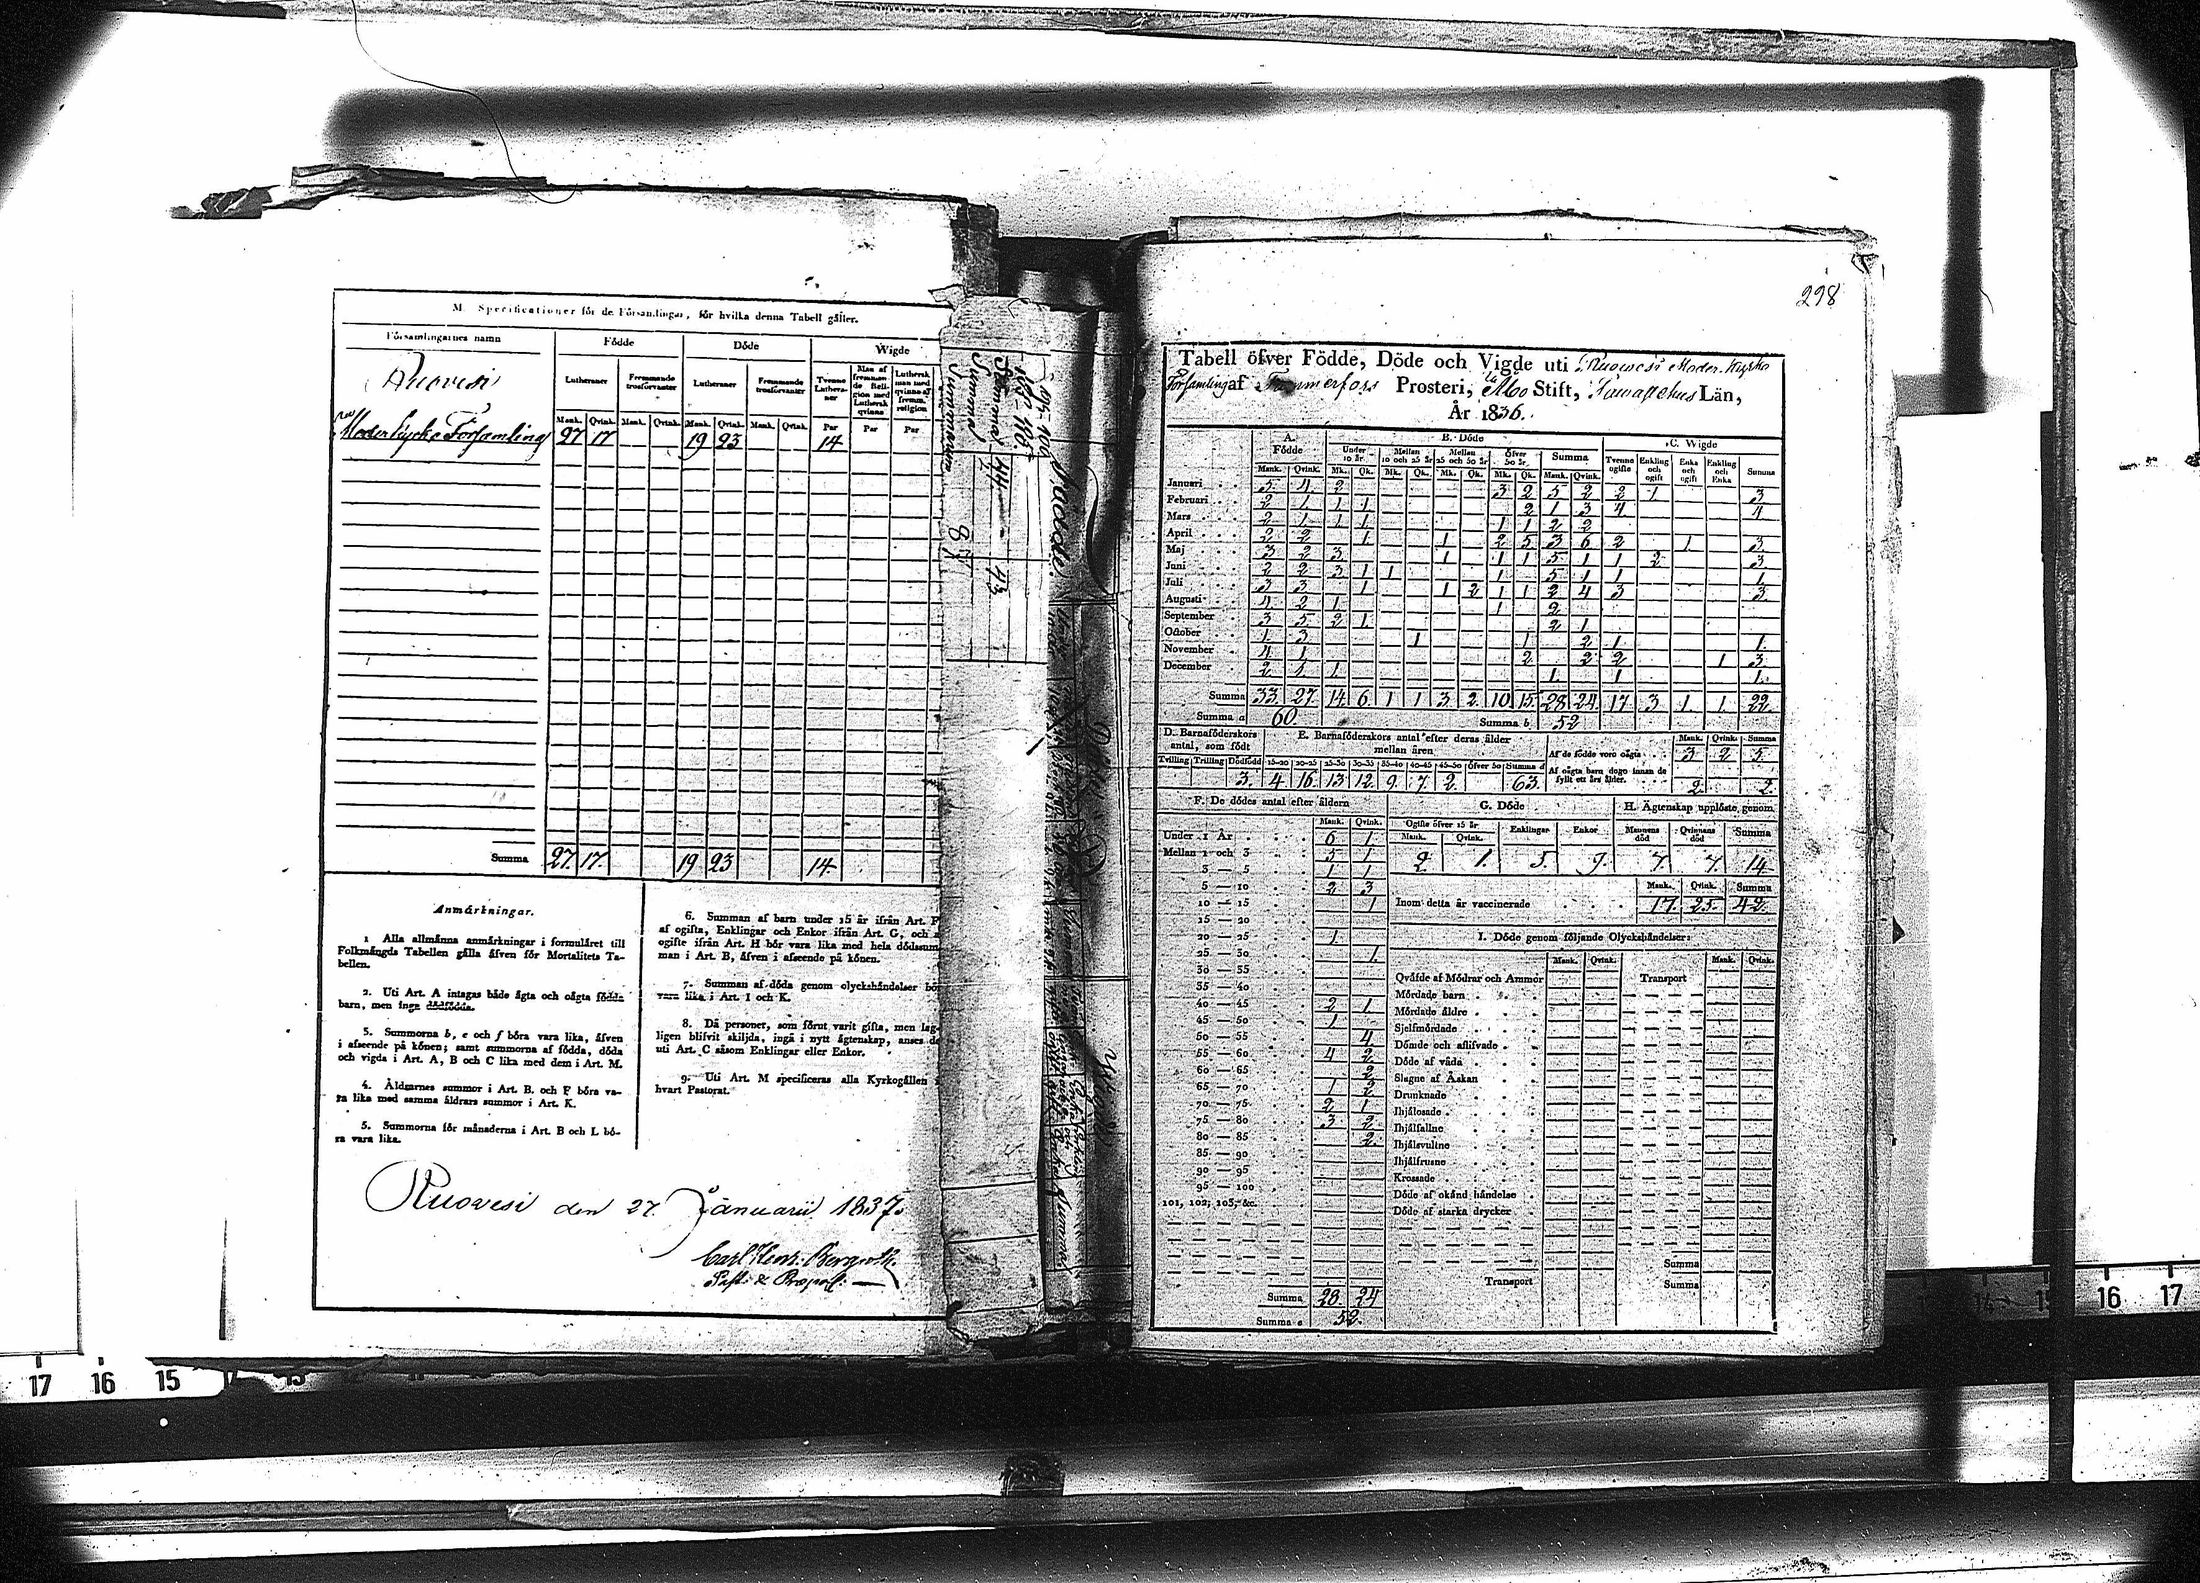 M. Specificationer för de Församlingar, för hvilka denna Tabell gäller.
Församlingarnes namn Födde Döde Wigde
Lutheraner Fremmande trosförvanter Lutheraner Fremmande trosförvanter Tvenne Lutheraner Man af fremmande Religion med Luthersk qvinna Luthersk man med qvinna af fremm. religion
Mank. Qvink. Mank. Qvink. Mank. Qvink. Mank. Qvink. Par Par Par
Ruovesi
Moderkyrko Församling 27 17 19 23 14
Summa 27. 17. 19 23 14.
Anmärkningar.
1 Alla allmänna anmärkningar i formuläret till
Folkmängds Tabellen gälla äfven för Mortalitets Ta-
bellen.
2. Uti Art. A intagas både ägta och oägta födda
barn, men inga dödfödda.
3. Summorna b, e och f böra vara lika, äfven
i afseende på könen; samt summorna af födda, döda
och vigda i Art. A, B och C lika med dem i Art. M.
4. Åldrarnes summor i Art. B. och F böra va-
ra lika med samma åldrars summor i Art. K.
5. Summorna för månaderna i Art. B och L bö-
ra vara lika.
6. Summan af barn under 15 år ifrån Art. F
af ogifta, Enklingar och Enkor ifrån Art. G, och a
ogifte ifrån Art. H bör vara lika med hela dödssum
man i Art. B, äfven i afseende på könen.
7. Summan af döda genom olyckshändelser bö
vara lika i Art. I och K.
8. Då personer, som förut varit gifta, men lag-
ligen blifvit skiljda, ingå i nytt ägtenskap, anses de
uti Art. C såsom Enklingar eller Enkor.
9. Uti Art. M specificeras alla Kyrkogällen i
hvart Pastorat.
Ruovesi den 27. Januarii 1837.
Carl Henr. Bergroth.
Past. & Præpos.
298
Tabell öfver Födde, Döde och Vigde uti Ruovesi Moder Kyrko
Församling af Tammerfors Prosteri, Åbo Stift, Tawastehus Län,
År 1836.
A. Födde B. Döde C. Wigde
Under 10 år Mellan 10 och 25 år Mellan 25 och 50 år Öfver 50 år Summa Tvenne ogifte Enkling och ogift Enka och ogift Enkling och Enka Summa
Mank. Qvink. Mk. Qk. Mk. Qk. Mk. Qk. Mk. Qk. Mank. Qvink.
Januari 5 4 2 3 2 5 2 2 1 3
Februari 2 1 1 1 2 1 3 4 4
Mars 2 1 1 1 1 1 2 2
April 2 2 1 1 2 5 3 6 2 1 3
Maj 3 2 3 1 1 1 5 1 1 2 3
Juni 2 2 3 1 1 1 5 1 1 1
Juli 3 3 1 1 2 1 1 2 4 3 3
Augusti 4 2 1 1 2
September 3 5 2 1 2 1
October 1 3 1 1 2 1 1
November 4 1 2 2 2 1 3
December 2 1 1 1 1 1
Summa 33 27 14 6 1 1 3 2 10 15 28 24 17 3 1 1 22
Summa a 60. Summa b 52
D. Barnaföderskors antal, som födt
E. Barnaföderskors antal efter deras ålder mellan åren
Mank. Qvink. Summa
Af de födde voro oägta 3 2 5
Tvilling Trilling Dödfödd 15-20 20-25 25-30 30-35 35-40 40-45 45-50 öfver 50 Summa d
3. 4 16 13 12 9 7 2 63
Af oägta barn dogo innan de fyllt ett års ålder. 2 2
F. De dödes antal efter åldern
Mank. Qvink.
Under 1 År 6 1
Mellan 1 och 3 5 1
3 — 5 1 1
5 — 10 2 3
10 — 15 1
15 — 20
20 — 25 1
25 — 30 1
30 — 35
35 — 40
40 — 45 2 1
45 — 50 1
50 — 55 4
55 — 60 4 2
60 — 65 2
65 — 70 1 2
70 — 75 2 1
75 — 80 3 2
80 — 85 2
85 — 90
90 — 95
95 — 100
101, 102, 103, &c.
Summa 28 24
Summa e 52.
G. Döde
Ogifte öfver 15 år Enklingar Enkor
Mank. Qvink.
2 1 5. 9.
H. Ägtenskap upplöste genom
Mannens död Qvinnans död Summa
7. 7. 14
Mank. Qvink. Summa
Inom detta år vaccinerade 17. 25. 42.
I. Döde genom följande Olyckshändelser:
Mank. Qvink. Mank. Qvink.
Qväfde af Mödrar och Ammor Transport
Mördade barn
Mördade äldre
Sjelfmördade
Dömde och aflifvade
Döde af våda
Slagne af Åskan
Drunknade
Ihjälosade
Ihjälfallne
Ihjälsvultne
Ihjälfrusne
Krossade
Döde af okänd händelse
Döde af starka drycker
Summa
Transport Summa